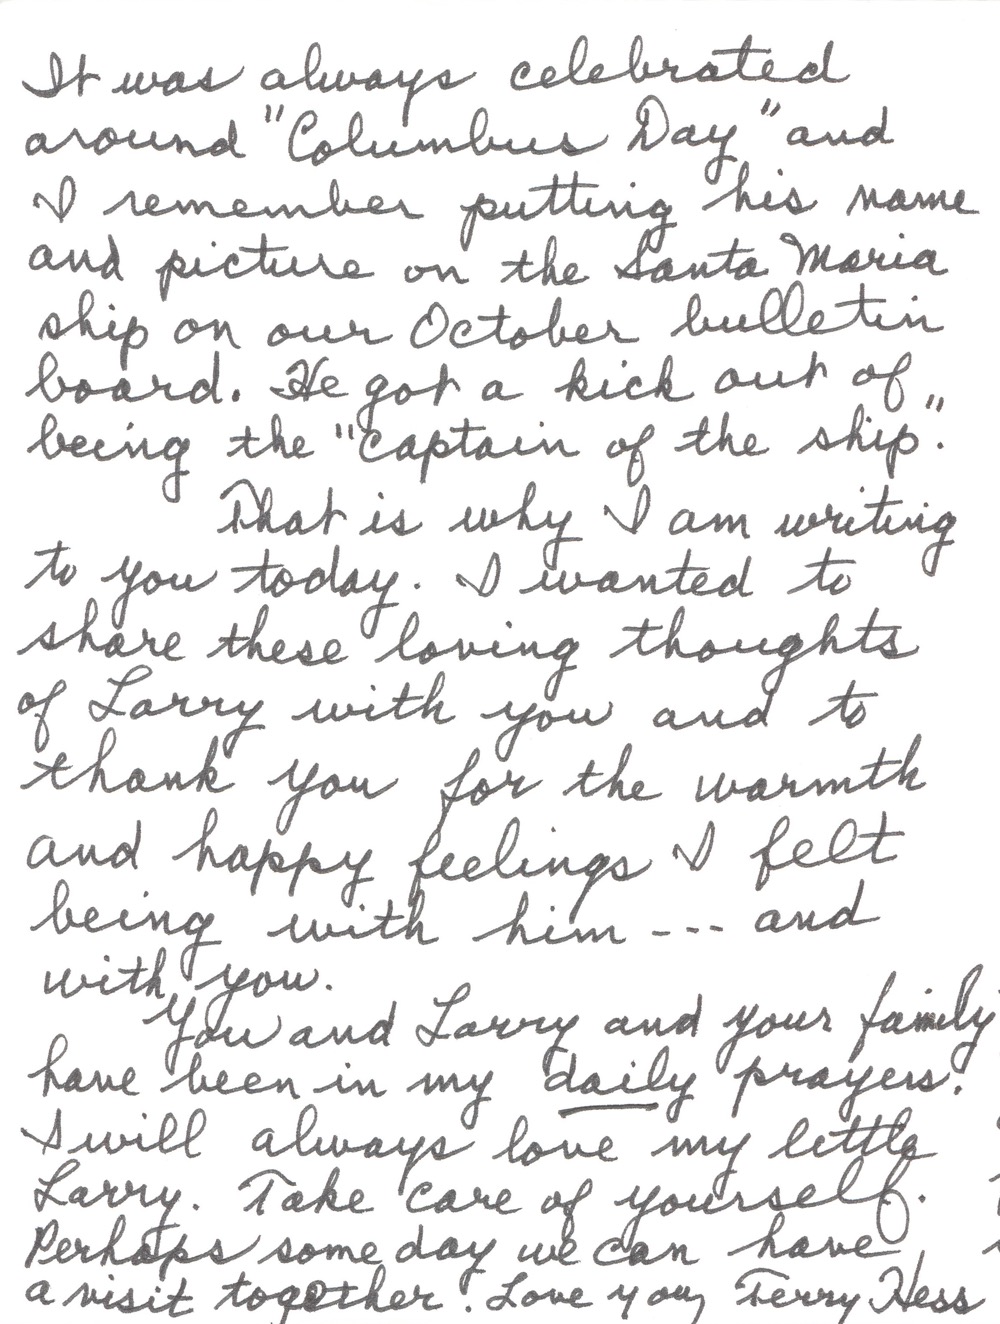 It was always celebrated
around "Columbus Day" and
I remember putting his name
and picture on the Santa Maria
ship on our October bulletin
board. He got a kick out of
being the "captain of the ship".
That is why I am writing
to you today. I wanted to
share these loving thoughts
of Larry with you and to
thank you for the warmth
and happy feelings I felt
being with him --- and
with you.
You and Larry and your family
have been in my daily prayers.
I will always love my little
Larry. Take care of yourself.
Perhaps some day we can have
a visit together. Love you, Terry Hess